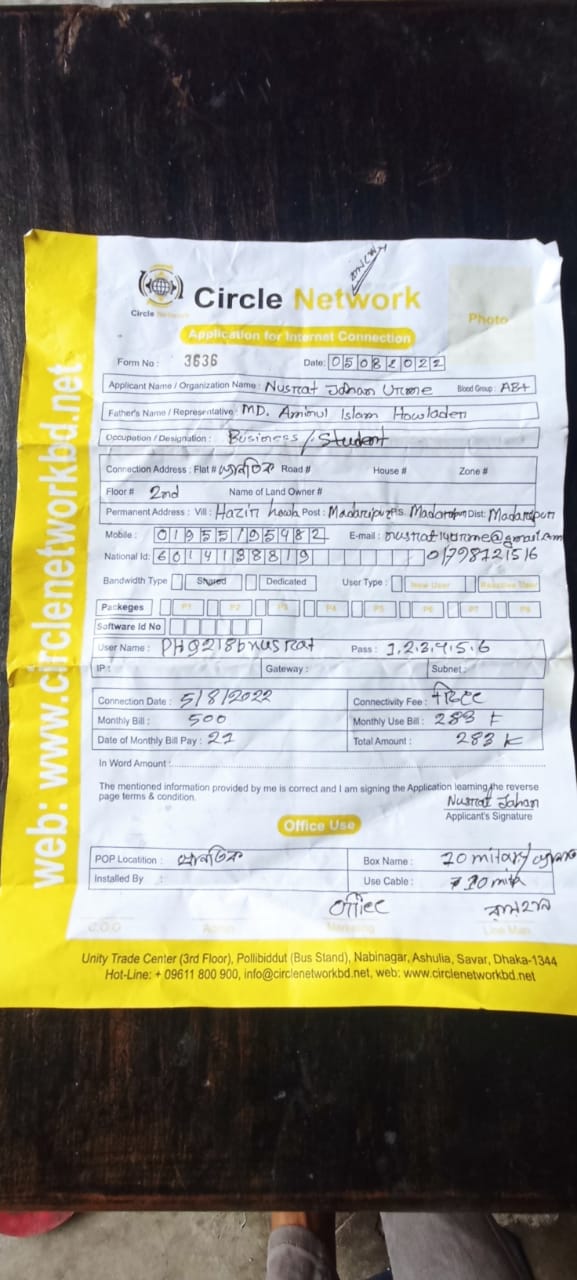 Circle Network
Circle Network
Photo
Application for Internet Connection
Form No : 3636 Date: 05082022
Applicant Name / Organization Name : Nusrat Jahan Urme Blood Group : AB+
Father's Name / Representative : MD. Aminul Islam Howlader
Occupation / Designation : Business / Student
Connection Address : Flat # Road # House # Zone #
Floor # 2nd Name of Land Owner #
Permanent Address : Vill : Hazir howla Post : Madaripur P.S. Madaripur Dist: Madaripur
Mobile : 01955795482 E-mail : nusrat14urme@gmail.com
National Id: 6014138819 01798121516
Bandwidth Type Shared Dedicated User Type : New User Reactive User
Packeges P1 P2 P3 P4 P5 P6 P7 P8
Software Id No
User Name : PH9218bnusrat Pass : 1.2.3.4.5.6
IP : Gateway : Subnet :
Connection Date : 5/8/2022 Connectivity Fee :
Monthly Bill : 500 Monthly Use Bill : 283 ৳
Date of Monthly Bill Pay : 21 Total Amount : 283
In Word Amount :
The mentioned information provided by me is correct and I am signing the Application learning the reverse
page terms & condition.
Nusrat Jahan
Applicant's Signature
Office Use
POP Locatition : Box Name :
Installed By : Use Cable :
C.O.O Admin Marketing Line Man
Unity Trade Center (3rd Floor), Pollibiddut (Bus Stand), Nabinagar, Ashulia, Savar, Dhaka-1344
Hot-Line: + 09611 800 900, info@circlenetworkbd.net, web: www.circlenetworkbd.net
web: www.circlenetworkbd.net